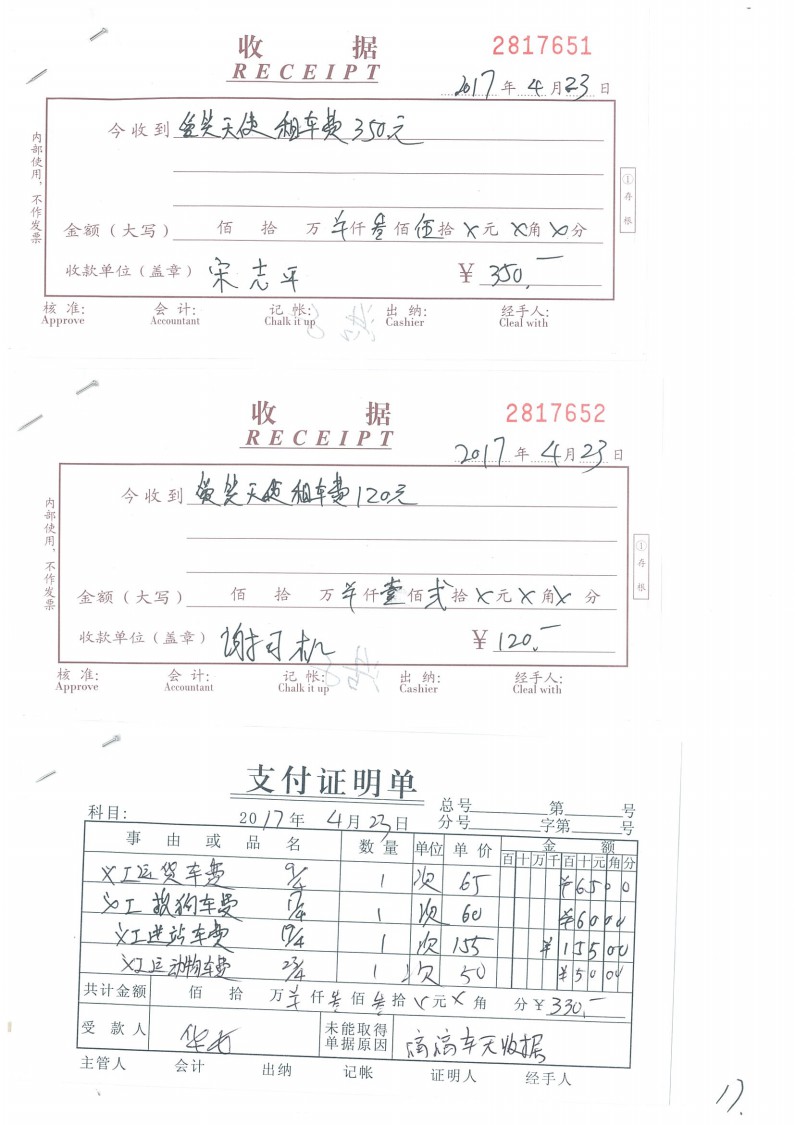 收 据 2817651
RECEIPT
2017 年 4 月 23 日
今收到 天使 租车费 350元
金额（大写） 佰 拾 万 仟 叁 佰 伍 拾 ㄨ 元 ㄨ 角 ㄨ 分
收款单位（盖章） 宋志平 ￥ 350.—
核 准: 会 计: 记 帐: 出 纳: 经手人:
Approve Accountant Chalk it up Cashier Cleal with
内部使用，不作发票
① 存 根
收 据 2817652
RECEIPT
2017 年 4 月 23 日
今收到 天使 租车费 120元
金额（大写） 佰 拾 万 仟 壹 佰 贰 拾 ㄨ 元 ㄨ 角 ㄨ 分
收款单位（盖章） 谢司机 ￥ 120.—
核 准: 会 计: 记 帐: 出 纳: 经手人:
Approve Accountant Chalk it up Cashier Cleal with
内部使用，不作发票
① 存 根
支付证明单
总号 第 号
科目: 2017 年 4 月 23 日 分号 字第 号
事 由 或 品 名 数 量 单位 单 价 金 额
百 十 万 千 百 十 元 角 分
义工运货车费 9/4 1 次 65 ￥ 6 5 0 0
义工 车费 1 次 60 ￥ 6 0 0 0
义工进站车费 19/4 1 次 155 ￥ 1 5 5 0 0
义工运动物车费 23/4 1 次 50 ￥ 5 0 0 0
共计金额 佰 拾 万 仟 叁 佰 叁 拾 ㄨ 元 ㄨ 角 分 ￥ 330.—
受 款 人 未能取得单据原因 车无收据
主管人 会计 出纳 记帐 证明人 经手人
17.